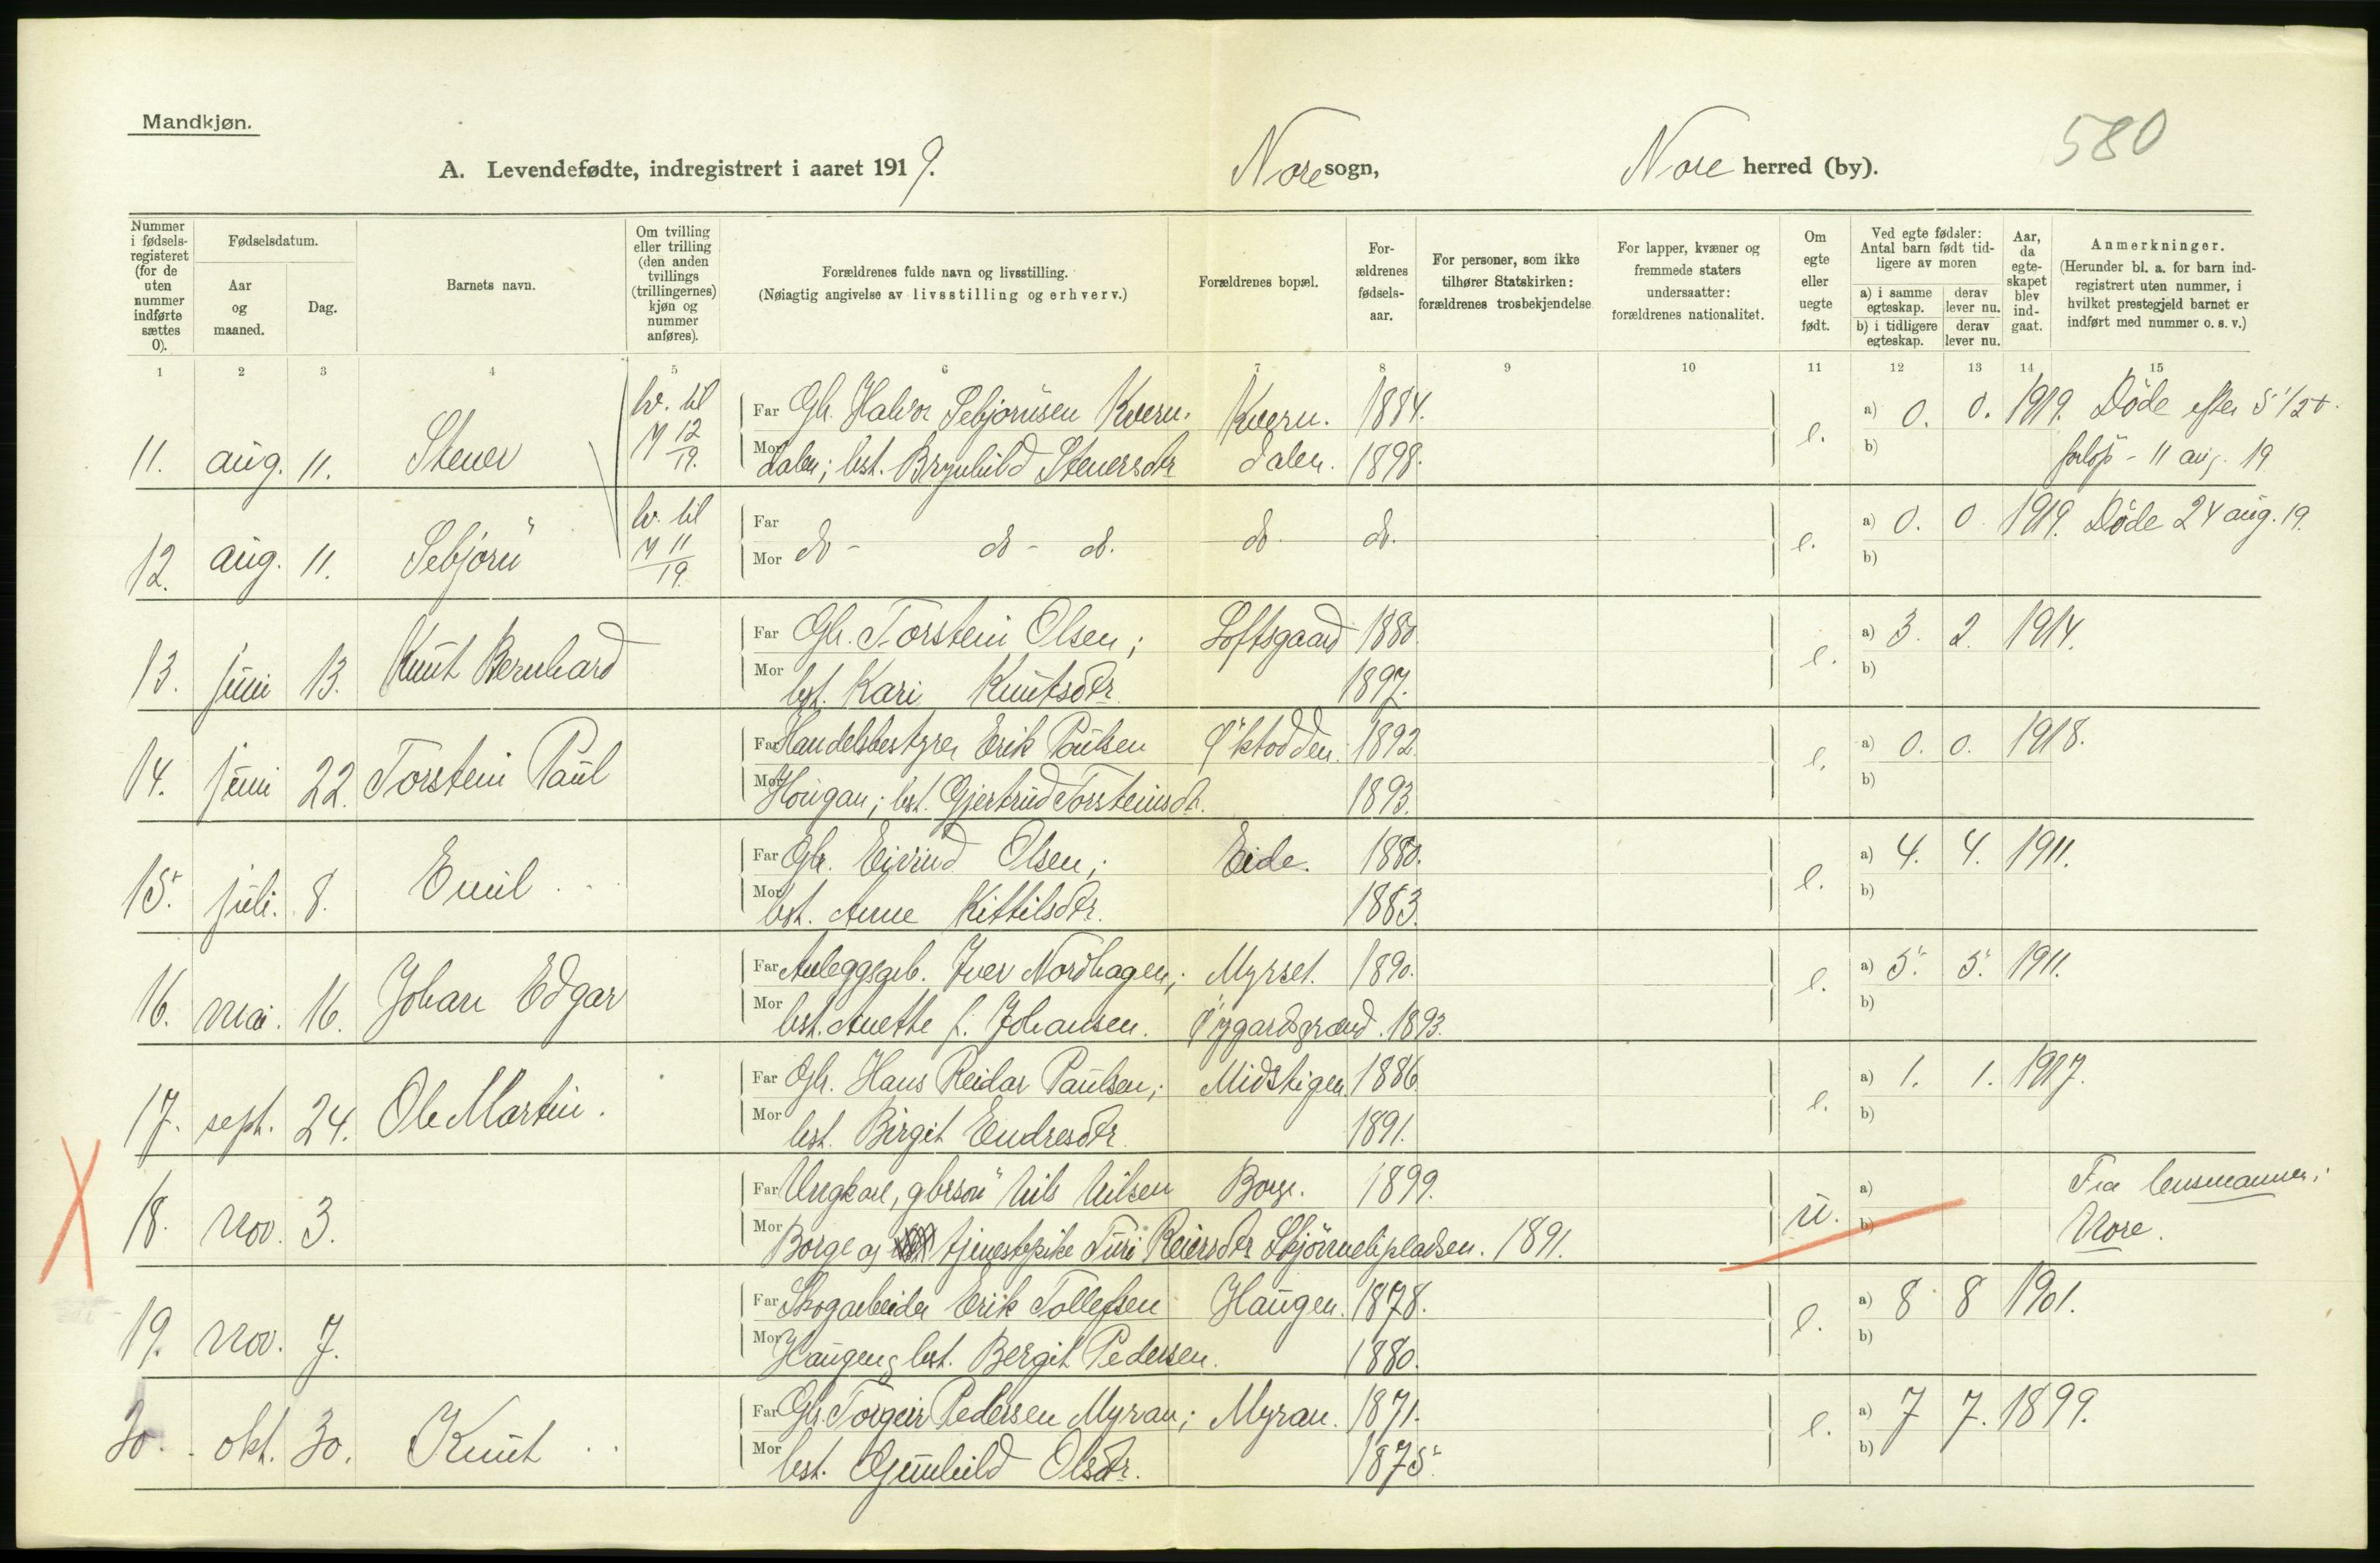 Mandkjøn.
580
A. Levendefødte, indregistrert i aaret 1919. Nore sogn, Nore herred (by).
Nummer i fødselsregisteret (for de uten nummer indførte sættes 0).
Fødselsdatum.
Aar og maaned.
Dag.
Barnets navn.
Om tvilling eller trilling (den anden tvillings (trillingernes) kjøn og nummer anføres).
Forældrenes fulde navn og livsstilling.
(Nøiagtig angivelse av livsstilling og erhverv.)
Forældrenes bopæl.
Forældrenes fødselsaar.
For personer, som ikke tilhører Statskirken: forældrenes trosbekjendelse
For lapper, kvæner og fremmede staters undersaatter: forældrenes nationalitet.
Om egte eller uegte født.
Ved egte fødsler: Antal barn født tidligere av moren
a) i samme egteskap. derav lever nu.
b) i tidligere egteskap. derav lever nu.
Aar, da egteskapet blev indgaat.
Anmerkninger.
(Herunder bl. a. for barn indregistrert uten nummer, i hvilket prestegjeld barnet er indført med nummer o. s. v.)
1 2 3 4 5 6 7 8 9 10 11 12 13 14 15
tv. til Far Gbr. Halvor Sebjørnsen Kvern- Kvern. 1884. a) 0. 0. 1919. Døde efter 5 1/2 t.
11. aug. 11. Stener M 12/19. Mor dalen; hst. Brynhild Stenersdtr dalen. 1898. e. b) forløp - 11 aug. 19
tv. til Far a) 0. 0 1919. Døde 24 aug. 19.
12. aug. 11. Sebjørn M 11/19. Mor do - do - do. do do. e. b)
Far Gbr. Torstein Olsen; Loftsgaard 1880. a) 3. 2. 1914.
13. juni 13. Knut Bernhard Mor hst. Kari Knutsdtr. 1897. e. b)
Far Handelsbestyrer Erik Paulsen Øktodden. 1892. a) 0. 0. 1918.
14. juni 22. Torstein Paul Mor Hougan; hst. Gjertrud Torsteinsdtr. 1893. e. b)
Far Gbr. Eivind Olsen; Eide. 1880. a) 4. 4. 1911.
15. juli. 8. Emil Mor hst. Anne Kittilsdtr. 1883. e. b)
Far Anleggsarb. Iver Nordhagen; Myrset. 1890. a) 5. 5. 1911.
16. mai. 16. Johan Edgar Mor hst. Anette f. Johansen. Øygardsgrænd. 1893. e. b)
Far Gbr. Hans Reidar Paulsen; Midstigen. 1886. a) 1. 1. 1917.
17. sept. 24. Ole Martin. Mor hst. Birgit Endresdtr. 1891. e. b)
Far Ungkar, gbrsøn Nils Nilsen Borge. 1899. a) Fra lensmannen i
18. nov. 3. Mor Borge og tjenestepike Turi Reiersdtr Skjønnelipladsen. 1891. u. b) Nore.
Far Skogarbeider Erik Tollefsen Haugen. 1878. a) 8 8 1901.
19. nov. 7. Mor Haugen; hst. Bergit Pedersen. 1880. e. b)
Far Gbr. Torgeir Pedersen Myran; Myran. 1871. a) 7 7. 1899.
20. okt. 30. Knut Mor hst. Gunhild Olsdtr. 1875. e. b)